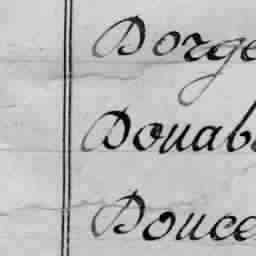 Dorge
Douab
Douce